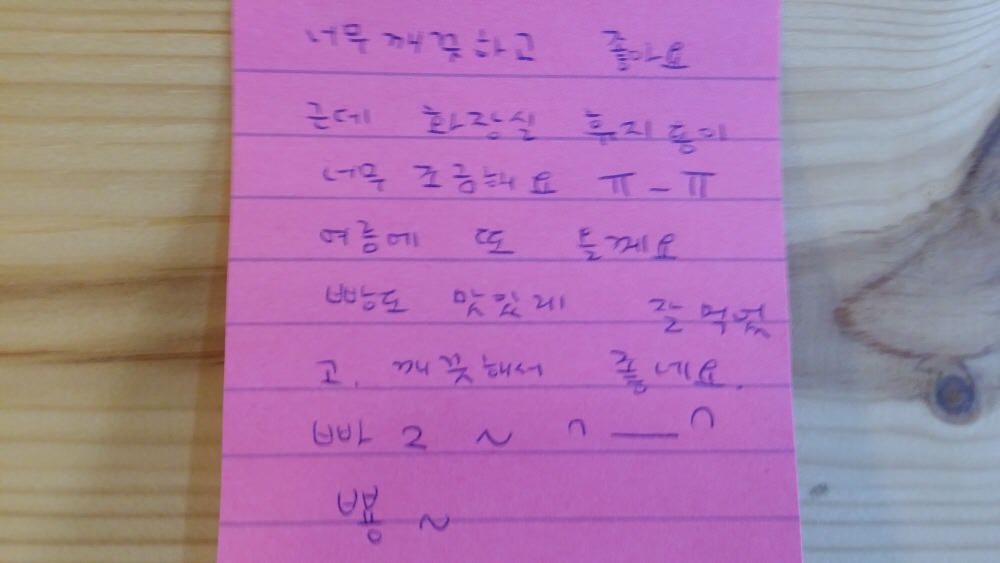 너무 깨끗하고 좋아요
근데 화장실 휴지통이
너무 조금해요 ㅠ-ㅠ
여름에 또 올께요
빵도 맛있게 잘 먹었
고. 깨끗해서 좋네요.
빠2 ~ ^__^
뿅 ~